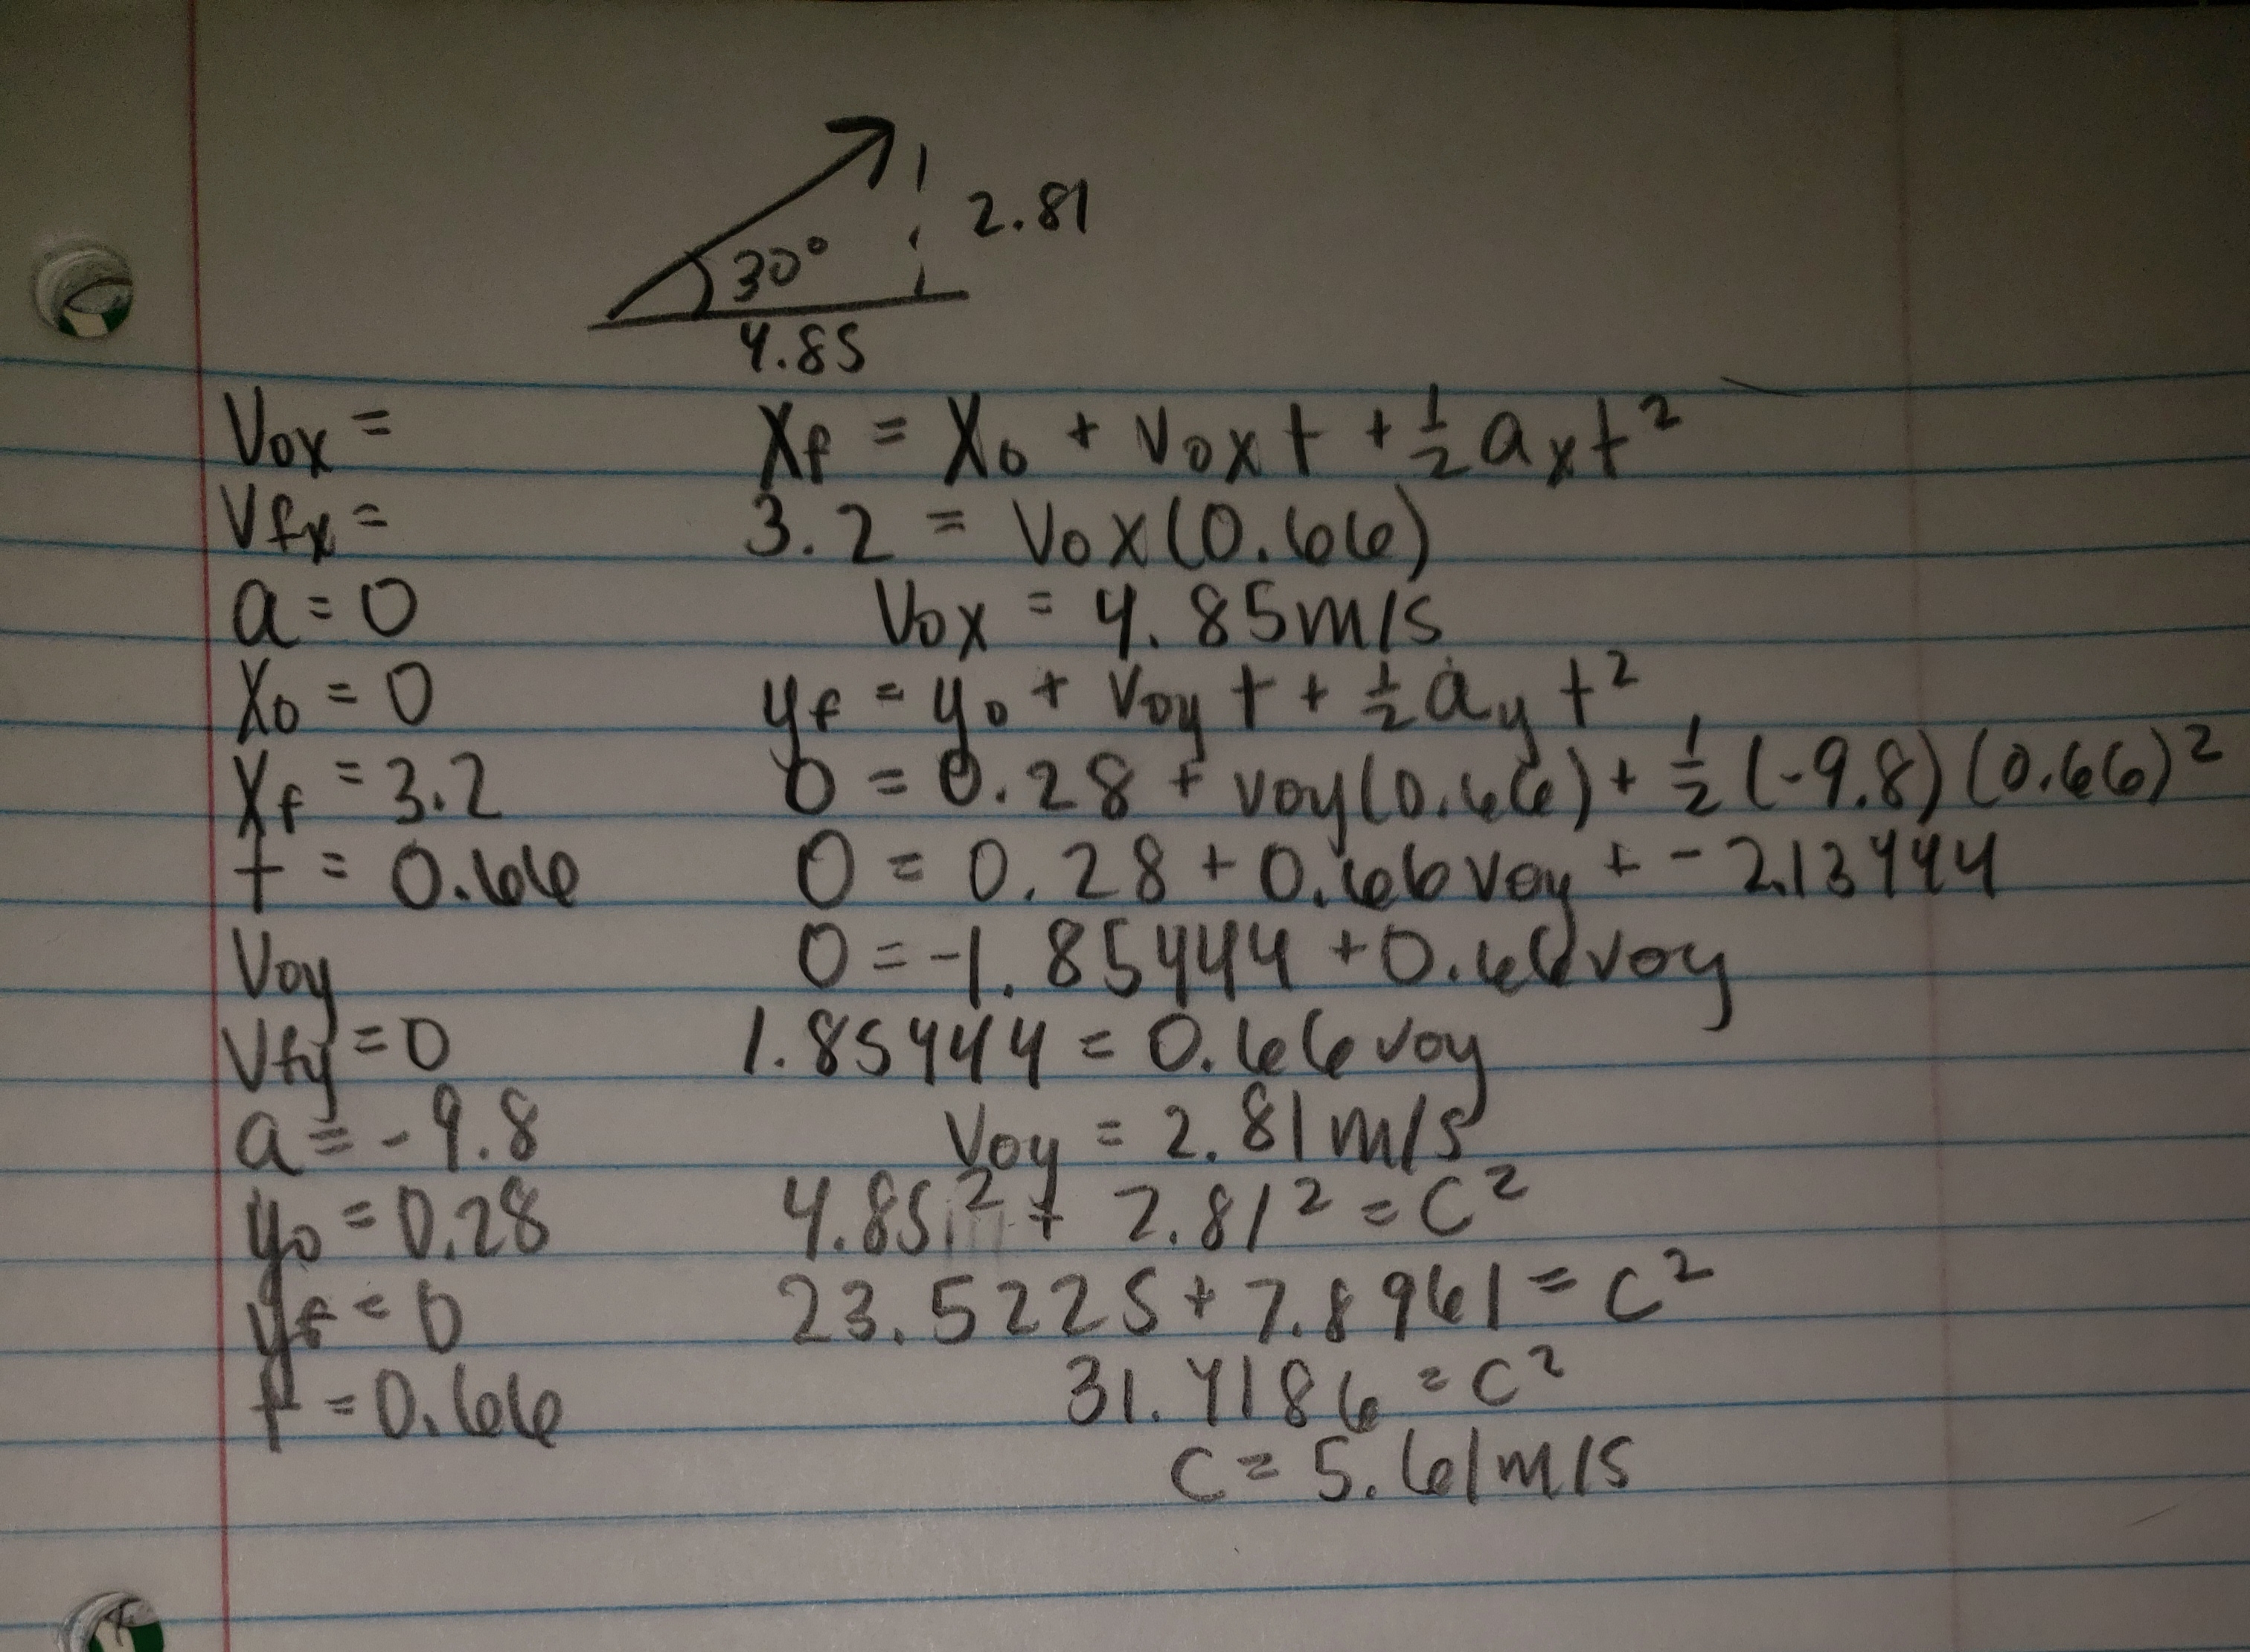 2.81
30°
4.85
Vox =
Vfx =
a = 0
X0 = 0
Xf = 3.2
t = 0.66
Voy
Vfy = 0
a = -9.8
y0 = 0.28
yf = 0
t = 0.66
Xf = X0 + Voxt + ½axt²
3.2 = Vox(0.66)
Vox = 4.85m/s
yf = y0 + Voyt + ½ayt²
0 = 0.28 + voy(0.66) + ½(-9.8)(0.66)²
0 = 0.28 + 0.66voy + -2.13444
0 = -1.85444 + 0.66voy
1.85444 = 0.66voy
Voy = 2.81m/s
4.85² + 2.81² = C²
23.5225 + 7.8961 = C²
31.4186 = C²
C = 5.61m/s